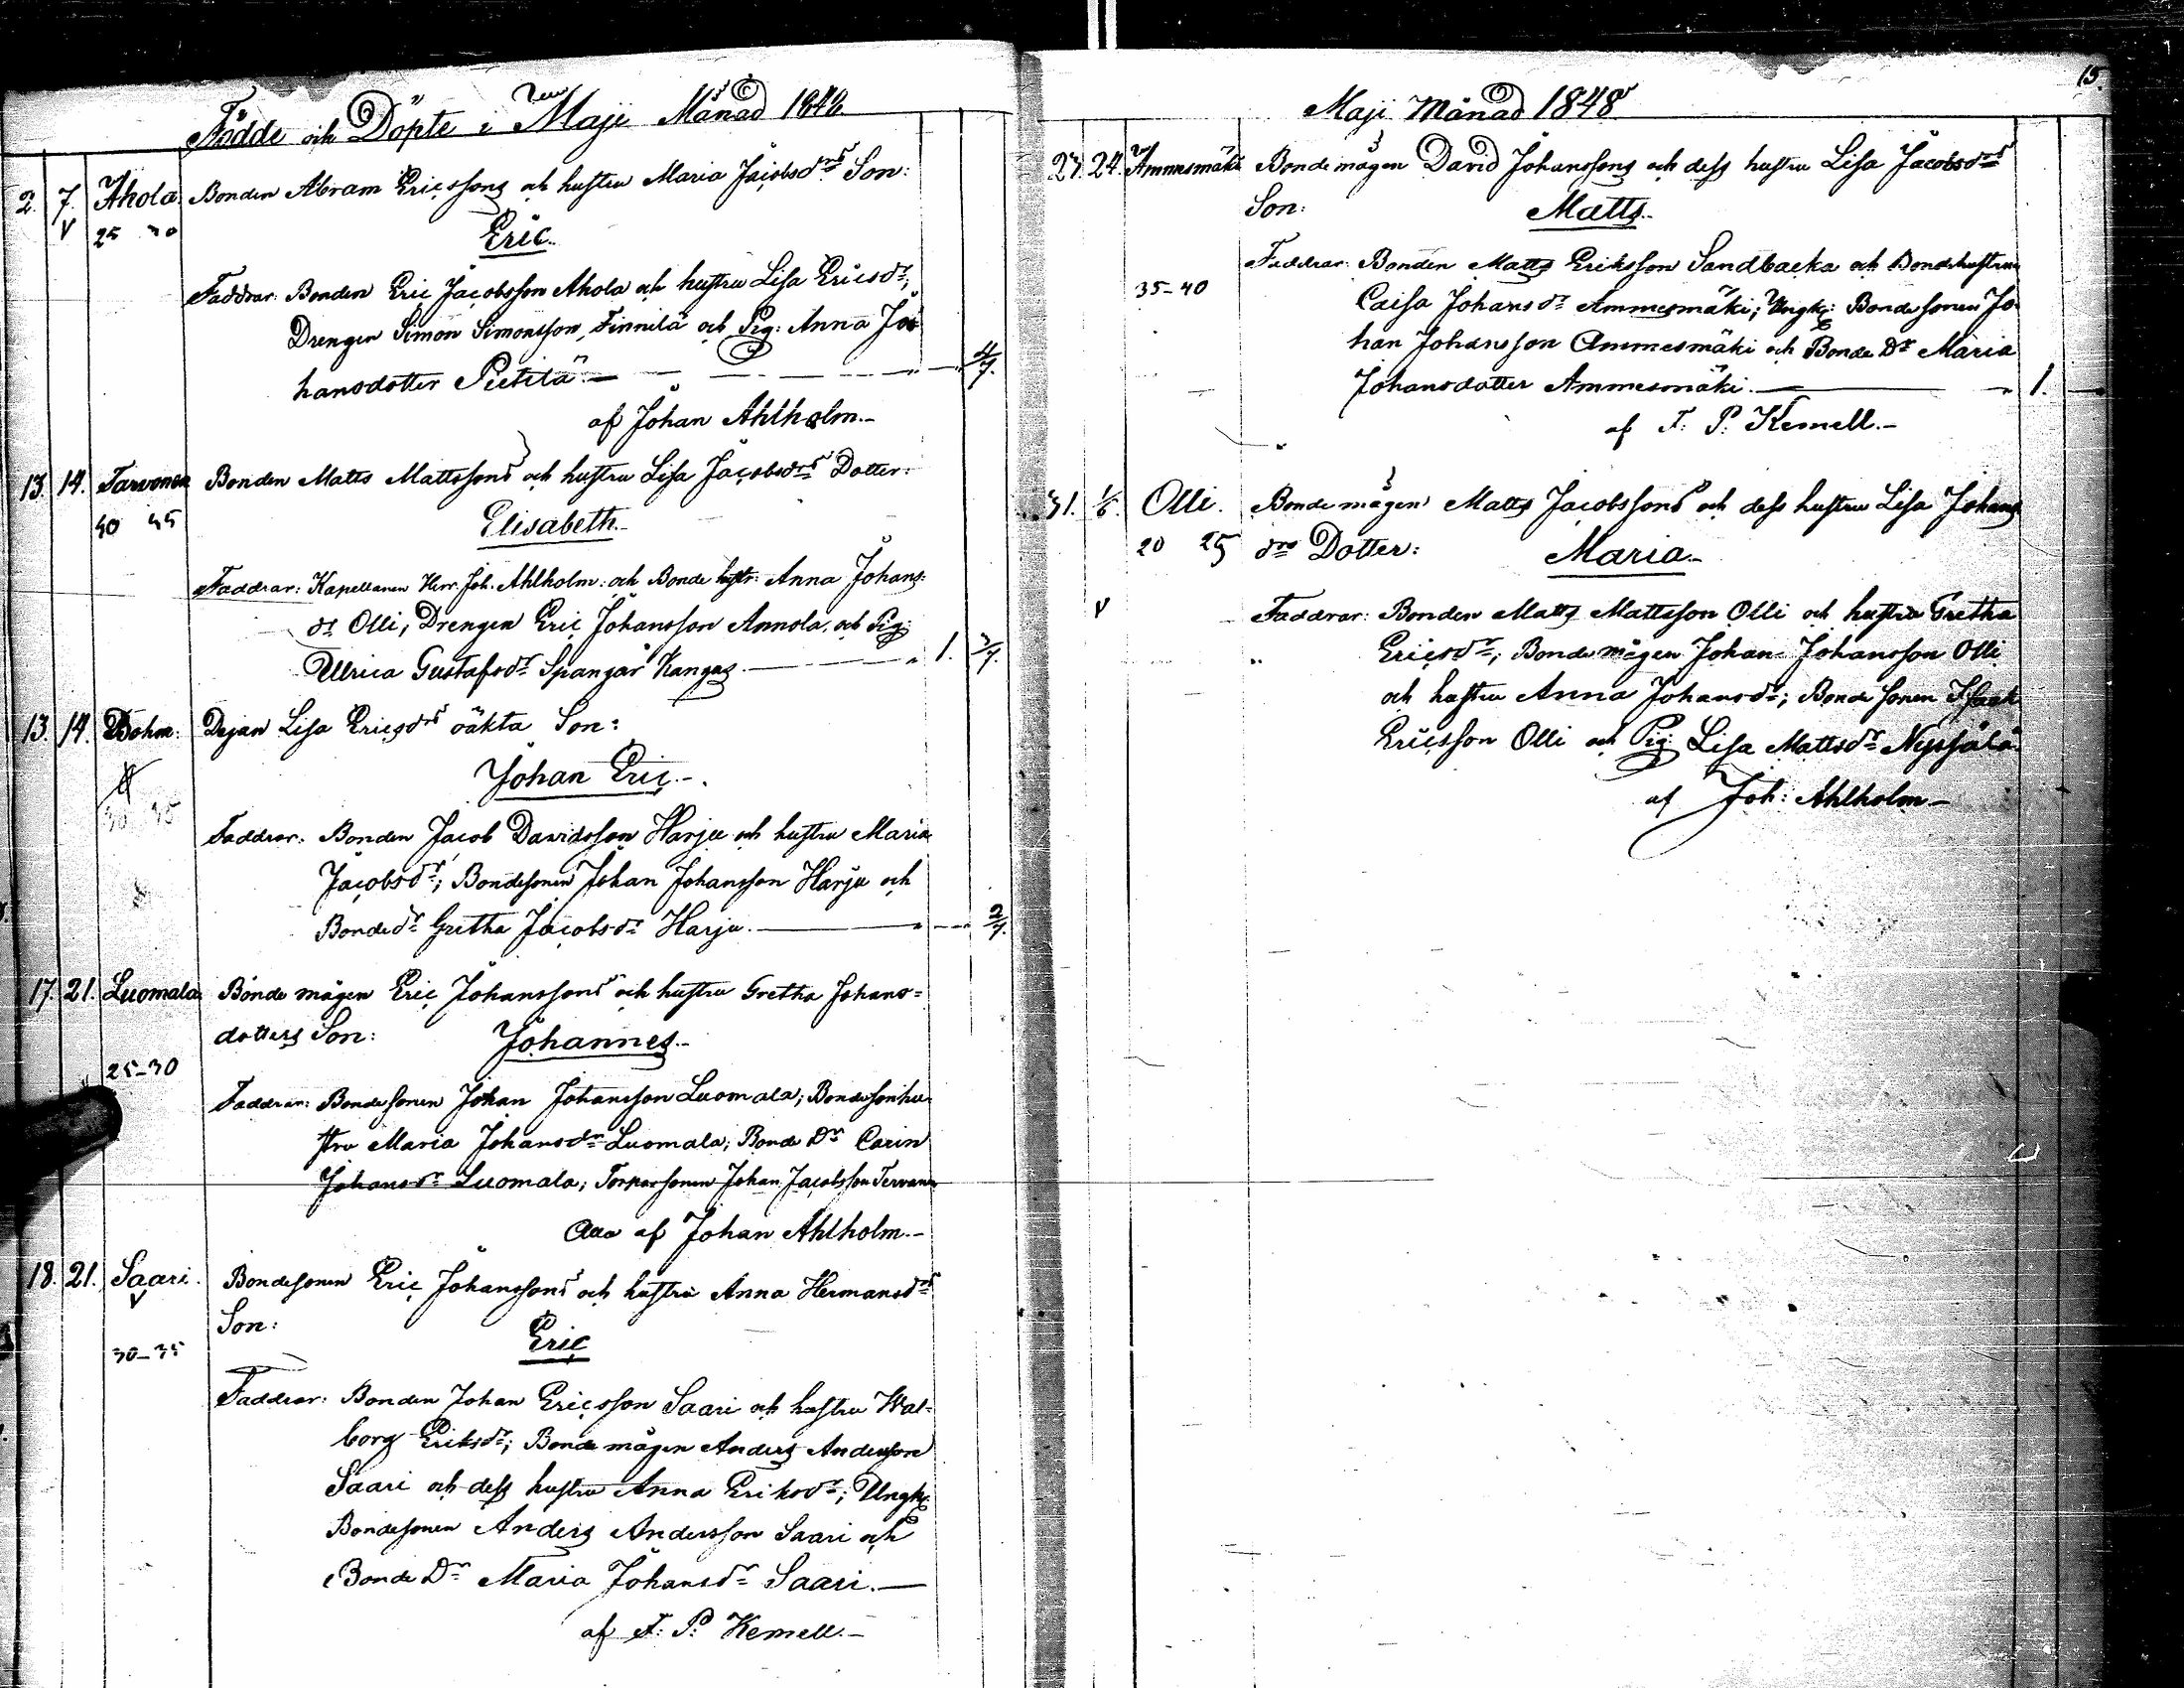 Födde och Döpte i Maji Månad 1848.
2. 7. Ahola. Bonden Abram Ericssons och hustru Maria Jacobsdrs Son:
25 30
Eric.
Faddrar: Bonden Eric Jacobsson Ahola och hustru Lisa Ericsdr,
Drengen Simon Simonsson Finnilä och Pig: Anna Jo-
hansdotter Pietilä.— 4/7.
af Johan Ahlholm.-
13. 14. Tarvonen Bonden Matts Mattssons och hustru Lisa Jacobsdrs Dotter:
40 45
Elisabeth.-
Faddrar: Kapellanen Herr Joh. Ahlholm: och Bonde hustr: Anna Johans:
dr Olli, Drengen Eric Johansson Annola, och Pig:
Ullrica Gustafsdr Spangar Kangas.— " 1. 3/7.
13. 14. Bohm. Dejan Lisa Ericsdrs oäkta Son:
30 35
Johan Eric.-
Faddrar: Bonden Jacob Davidsson Harju och hustru Maria
Jacobsdr; Bondesonen Johan Johansson Harju och
Bonde dr Gretha Jacobsdr Harju.— " 2/7.
17. 21. Luomala Bonde mågen Eric Johanssons och hustru Gretha Johans=
dotters Son: Johannes.-
25-30
Faddrar: Bondesonen Johan Johansson Luomala; Bondesonhu-
stru Maria Johansdr Luomala; Bonde Dr Carin
Johansdr Luomala; Torparsonen Johan Jacobsson
af Johan Ahlholm.-
18. 21. Saari. Bondesonen Eric Johanssons och hustru Anna Hermansdrs
Son:
30-35
Eric
Faddrar: Bonden Johan Ericsson Saari och hustru Wal-
borg Eriksdr; Bonde mågen Anders Andersson
Saari och dess hustru Anna Eriksdr; Ungk:
Bondesonen Anders Andersson Saari och
Bonde Dr Maria Johansdr Saari.—
af F. P. Kemell.-
15.
Maji Månad 1848
23. 24. Ammesmäki Bonde mågen David Johanssons och dess hustru Lisa Jacobsdrs
Son: Matts.-
Faddrar: Bonden Matts Eriksson Sandbacka och Bondehustrun
35-40
Caisa Johansdr Ammesmäki; Ungk: Bondesonen Jo-
han Johansson Ammesmäki och Bonde Dr Maria
Johansdotter Ammesmäki.— " 1.
af F. P. Kemell.-
31. 1/6. Olli. Bonde mågen Matts Jacobssons och dess hustru Lisa Johans
20 25 drs Dotter: Maria.-
Faddrar: Bonden Matts Mattsson Olli och hustru Gretha
Ericsdr; Bonde mågen Johan Johansson Olli
och hustru Anna Johansdr; Bonde sonen Isaak
Ericsson Olli och Pig: Lisa Mattsdr
af Joh: Ahlholm-